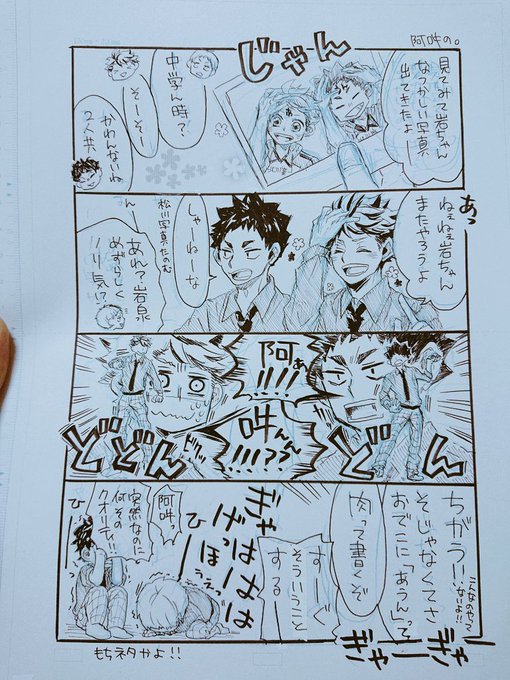 阿吽の。
じゃん
見てみて岩ちゃん
なつかしい写真
出てきたよー
中学ん時?
そーそー
かわんないね
2人共
あっ
ねぇねぇ岩ちゃん
またやろうよ
しゃーねーな
松川写真たのむ
んー
あれ?岩泉
めずらしく
ノリ気!?
阿ぁ
!!!!
吽んん
!!!??
どん
どどん
ちがうー
こんなのやって
ないよ!!
そじゃなくてさ
おでこに「あうん」って
肉って書くぞ
すーぐ
そういうこと
するー
ぎゃー
ぎゃー
ぎゃ
はははは
げほっ
阿吽っ
突然なのに
何その
クオリティ!!
ひー
もちネタかよ!!